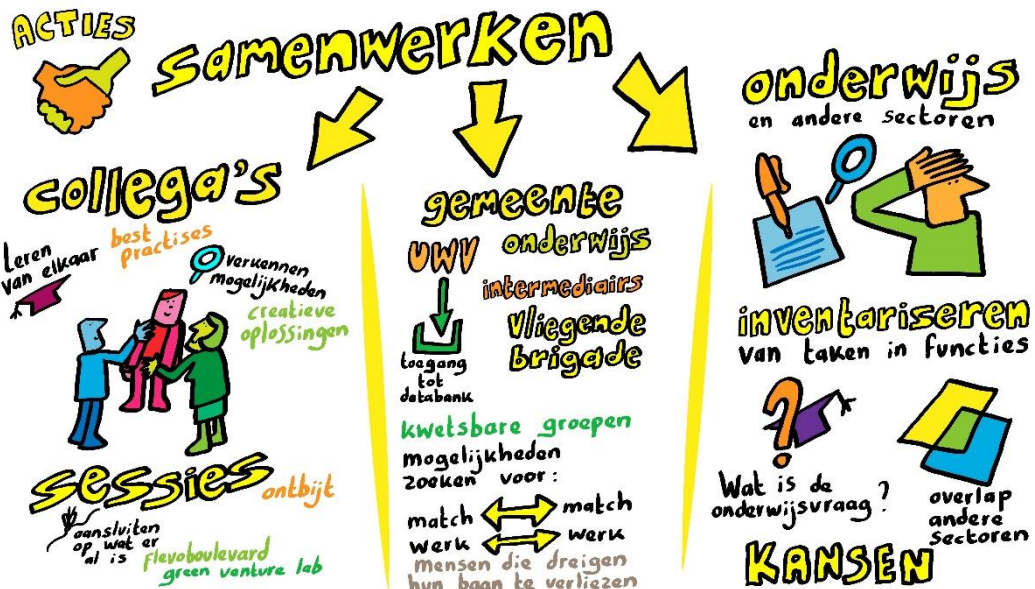 ACTIES
samenwerken
collega's
Leren
van elkaar
best
practises
verkennen
mogelijkheden
creatieve
oplossingen
sessies
ontbijt
aansluiten
op wat er
al is
flevoboulevard
green venture lab
gemeente
UWV
onderwijs
intermediairs
Vliegende
brigade
toegang
tot
databank
kwetsbare groepen
mogelijkheden
zoeken voor:
match match
werk werk
mensen die dreigen
hun baan te verliezen
onderwijs
en andere sectoren
inventariseren
van taken in functies
?
Wat is de
onderwijsvraag?
overlap
andere
sectoren
KANSEN